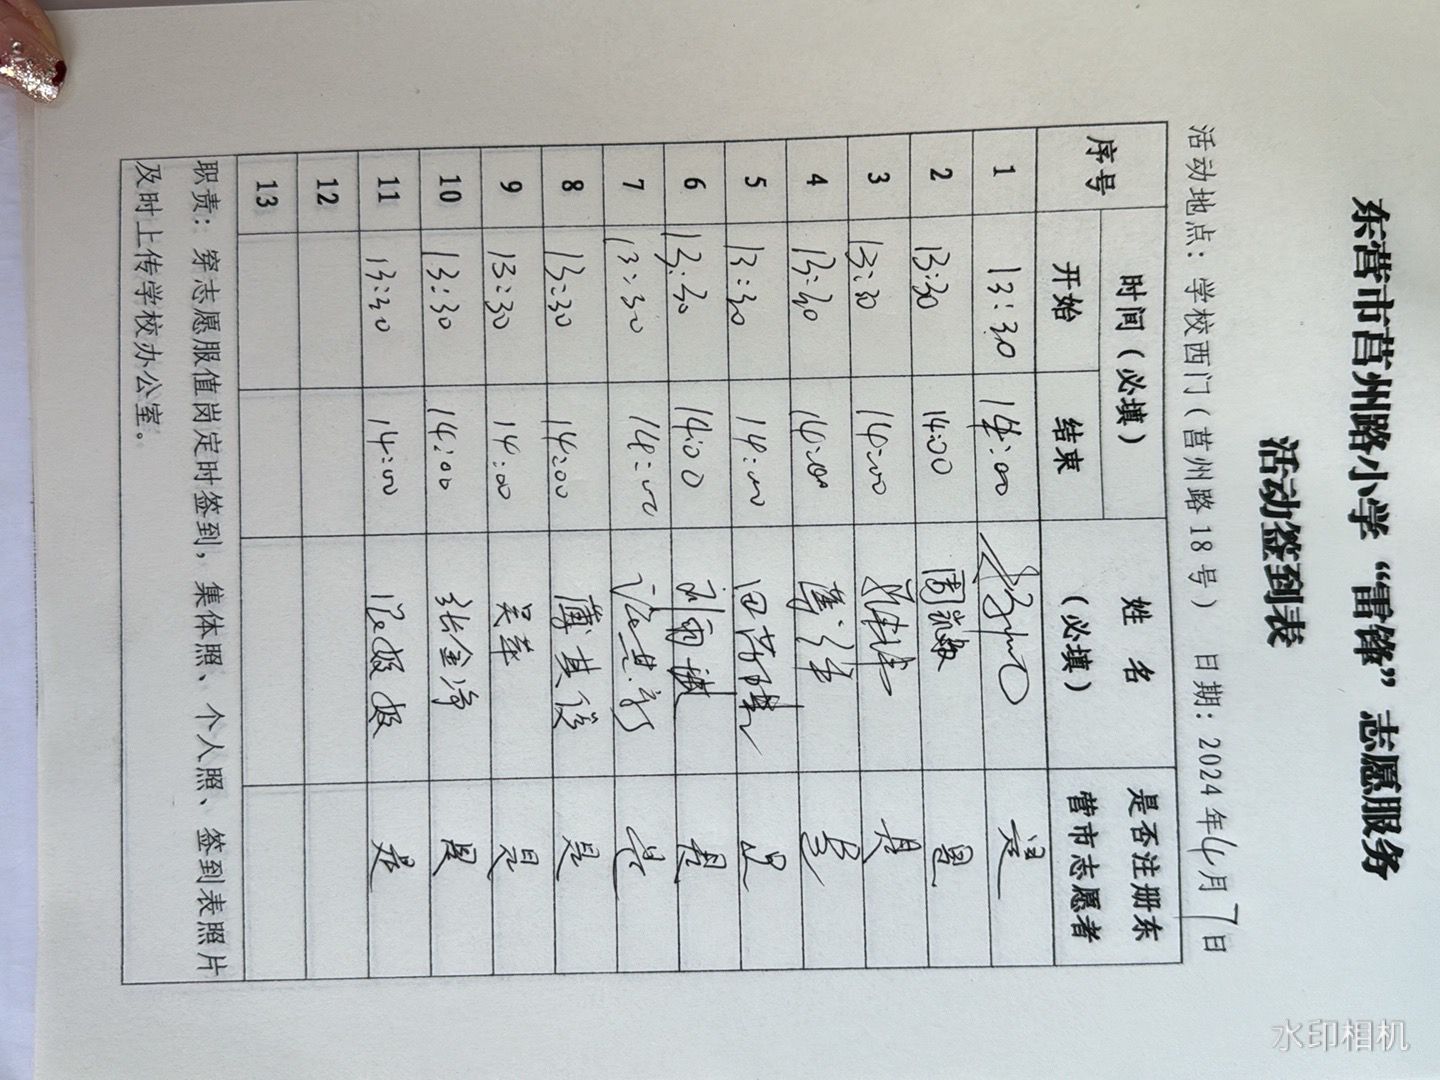 东营市莒州路小学“雷锋”志愿服务
活动签到表
活动地点：学校西门（莒州路18号） 日期：2024年4月7日
序号 时间（必填） 姓 名（必填） 是否注册东营市志愿者
开始 结束
1 13:30 14:00 是
2 13:30 14:00 周凯敏 是
3 13:30 14:00 是
4 13:30 14:00 是
5 13:30 14:00 是
6 13:30 14:00 刘雨诚 是
7 13:30 14:00 是
8 13:30 14:00 薄其俊 是
9 13:30 14:00 吴苹 是
10 13:30 14:00 张金净 是
11 13:30 14:00 是
12
13
职责：穿志愿服值岗定时签到，集体照、个人照、签到表照片
及时上传学校办公室。
水印相机